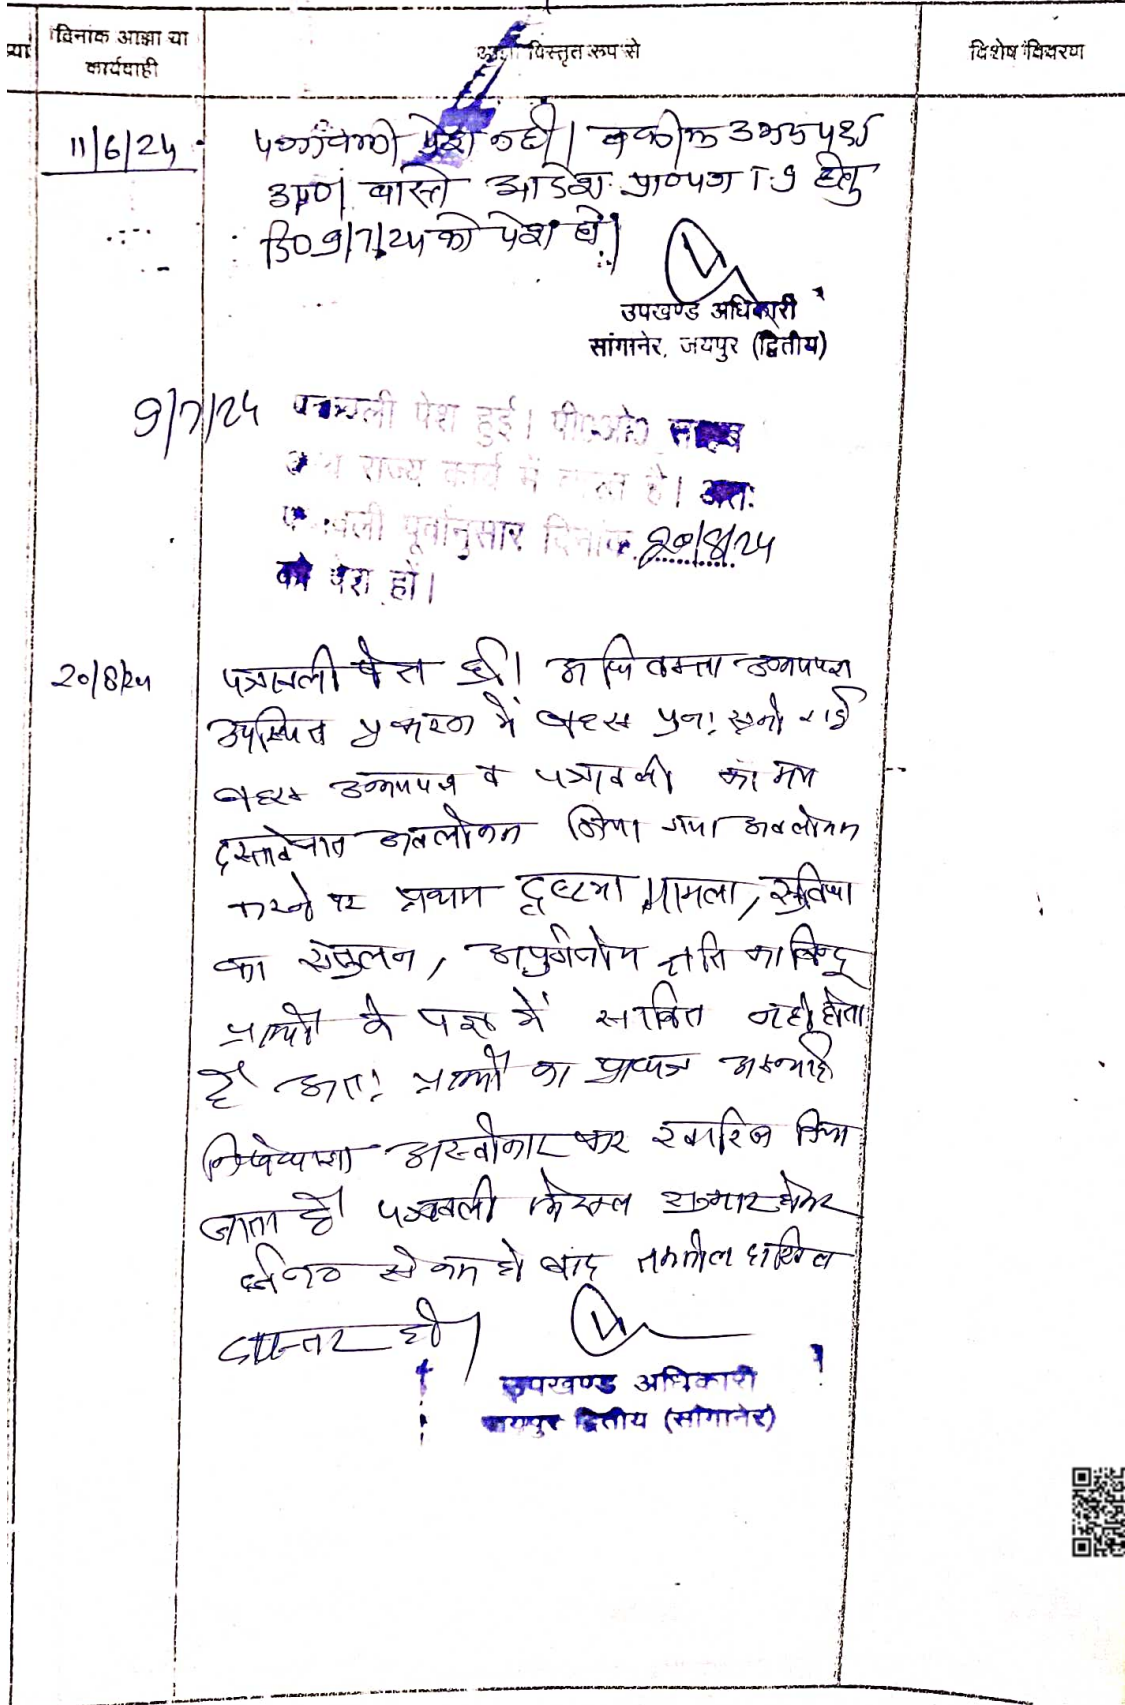 दिनांक आज्ञा या
कार्यवाही
आज्ञा विस्तृत रूप से
विशेष विवरण
11/6/24
पत्रावली पेश हुई। वकील उभयपक्ष
उप0। वास्ते आदेश प्रा0पत्र T.I हेतु
दि0 9/7/24 को पेश हो।
उपखण्ड अधिकारी
सांगानेर, जयपुर (द्वितीय)
9/7/24 पत्रावली पेश हुई। पी०ओ० साहब
अन्य राज्य कार्य में व्यस्त है। अतः
पत्रावली पूर्वानुसार दिनांक 20/8/24
को पेश हों।
20/8/24
पत्रावली पेश हुई। अधिवक्ता उभयपक्ष
उपस्थित प्रकरण में बहस पुनः सुनी गई
बहस उभयपक्ष व पत्रावली का मय
दस्तावेजात अवलोकन किया गया अवलोकन
करने पर प्रथम दृष्टया मामला, सुविधा
का संतुलन, अपूर्णनीय क्षति का बिन्दु
प्रार्थी के पक्ष में साबित नहीं होता
है अतः प्रार्थी का प्रा0पत्र अस्थाई
निषेधाज्ञा अस्वीकार कर खारिज किया
जाता है। पत्रावली फैसल शुमार होकर
नम्बर से कम हो बाद तकमील दाखिल
दफ्तर हो।
उपखण्ड अधिकारी
जयपुर द्वितीय (सांगानेर)